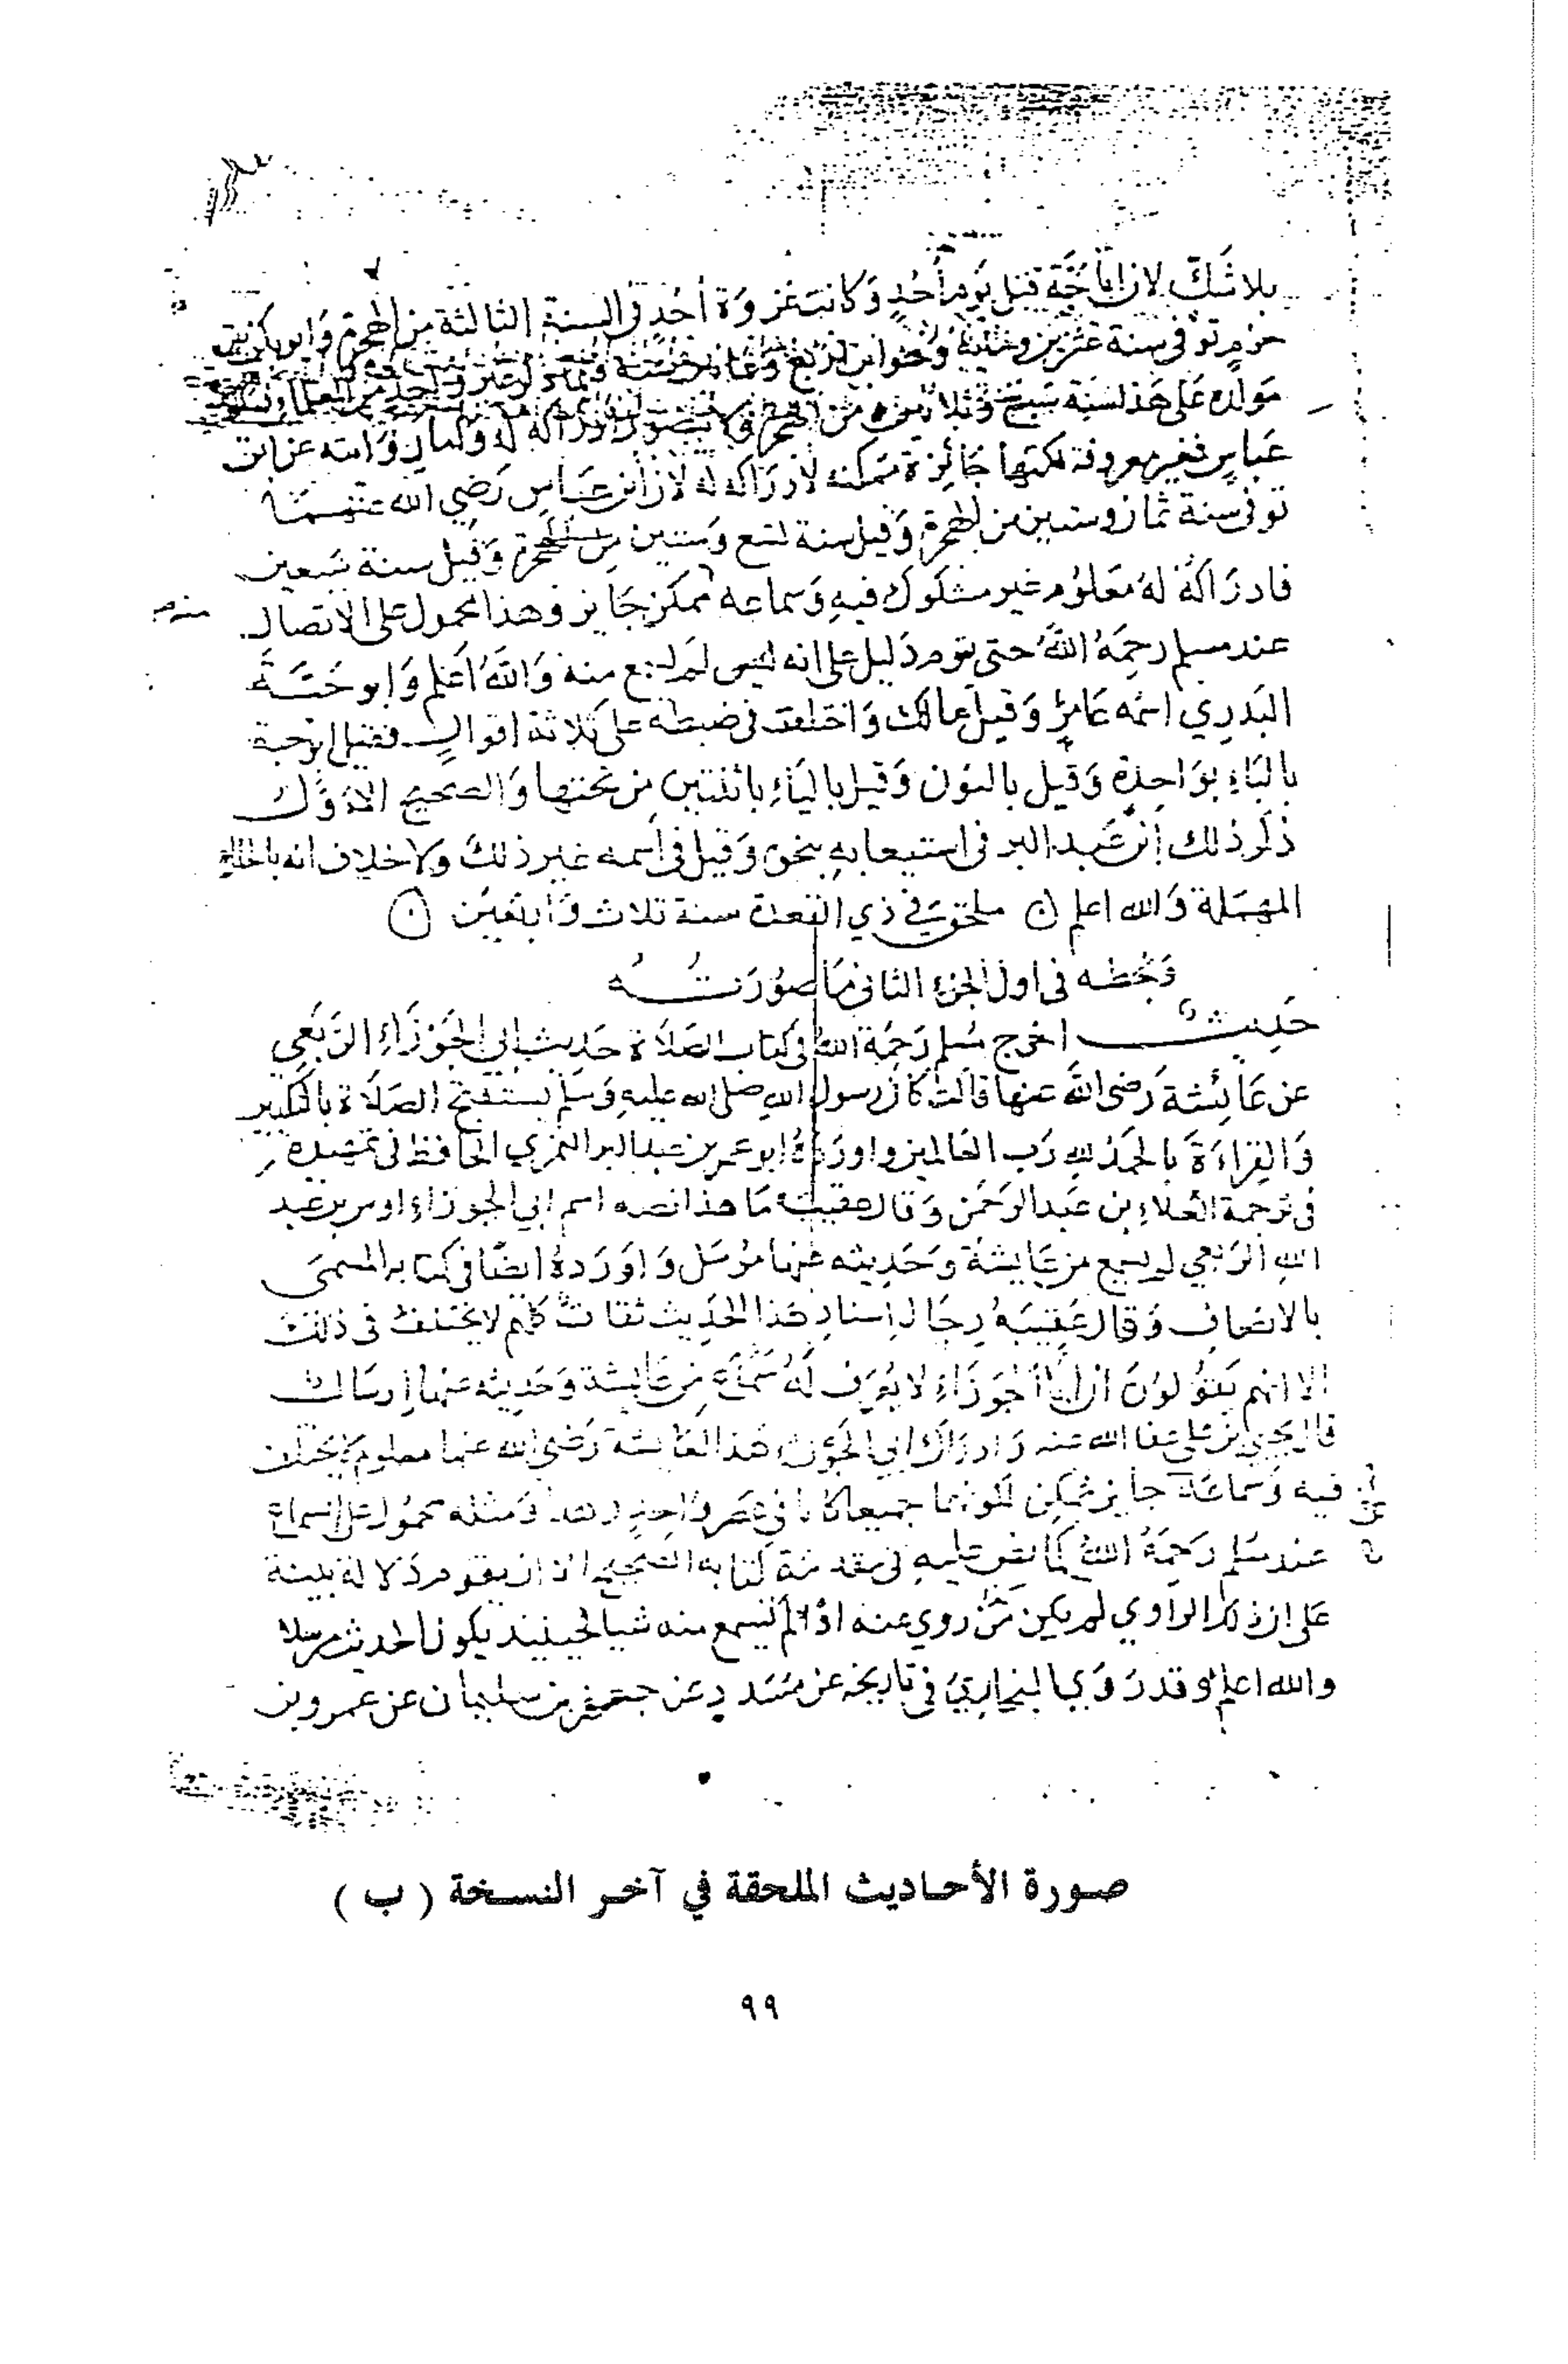 بلا شَكَّ لان ابا حَبَّة قتِل يَومَ أحُدٍ وَكانت غزوَة أحُدٍ في السنة الثالثة من الهجرة وَابو بكر بن
حزمٍ توفى سنة عشرين ومئية وَهو ابن اربَع وَثمانين سنة
مَولده عَلى هَذا لسَنة سَبع وَثلاثين من الهجرة فلا يتصور ادراكه له وَاما روَايته عن ابن
عَباسٍ فغير معروفة لكنها جَائِزة مُمكنه لادرَاكه له لان ابن عبَاس رَضِي الله عنهمَا
توفى سنة ثمان وستين من الهجرة وَقيل سنة تسع وَستين من الهجرة وَقيل سنة سَبعين
فادرَاكه لهُ مَعلوُم غير مشكوك فيهِ وَسماعه ممكن جَايز وهذا محمول على الاتصال
عند مسلم رحِمَهُ اللهُ حتى يقوم دَليل على انه لم يسمع منه وَاللهُ اَعلم وَابو حَبَّةَ
البَدرِي اسمه عَامرٌ وَقيل مالك وَاختلف في ضبطه على ثلاثة اقوالٍ فقيل ابو حبة
بالبَاءِ بوَاحِدة وَقيل بالنوُن وَقيل باليَاءِ باثنتين مِن تحتها وَالصحيح الاوَّل
ذكر ذلك ابن عَبد البر في استيعابهِ بنحوه وَقيل في اسمه غير ذلك وَلا خلاف انه بالحاء
المهمَلة وَالله اعلم ملحق في ذي القعدة سنة ثلاث وَاربَعين
وَبخطه في اول الجزء الثاني مَا صوُرَتُه
حَدِيث اخرج مُسلم رَحِمَهُ اللهُ في كتاب الصَلاَة حَديث ابي الجَوْزَاءِ الرَبَعِي
عن عَائِشة رَضى اللهُ عنها قالت كانَ رسول اللهِ صلى الله عليهِ وَسَلم يستفتح الصَلاَة بالتكبير
وَالقِراءَةَ بالحَمدُ للهِ رَبِ العَالمين واورَدَهُ ابو عمر بن عبد البر النمري الحَافظ في تمهيده
في ترجمة العلاءِ بن عَبد الرَحمن وَقال عقيبَه مَا هذا نصه اسم ابي الجوزاء اوس بن عبد
اللهِ الرَبَعي لم يسمع من عَايشَة وَحَديثه عنها مرُسَل وَاوَرَدهُ ايضًا في كتابه المسمىَ
بالانصاف وَقال عَقِيبَهُ رِجَال اِسنادِ هَذا الحَديث ثقاتٌ كلهم لا يختلفُ في ذلك
الا انهم يَقوُلوُنَ ان ابَا الجَوزَاءِ لا يُعرَف لَهُ سَمَاع مِن عَايشة وَحَديثه عنها اِرسَال
قال يحيى بن على عفا الله عنه وَادرَاك ابي الجَوزاء هَذا لعَايشة رَضى الله عنها معلوم لا يختلف
فيه وَسَماعَه جايز مُمكن لكونهما جميعا كانا في عصرٍ وَاحِدٍ وهذا وَمثله محمُول على السماع
عند مسُلم رَحِمَهُ اللهُ كما نصَ عليهِ في مقدمَة كتابه الصَحيح الا ان يقوم دَلالة بينة
عَلى ان ذلك الراوي لم يكن مَّن روي عنه اوْ لم يَسمع منه شيا فحينيذ يكون الحديث مرسلا
والله اعلم وقد رَوَى البخاري في تاريخه عن مسَددٍ عن جعفر بن سليمان عن عمرو بن
صورة الأحاديث الملحقة في آخر النسخة ( ب )
٩٩